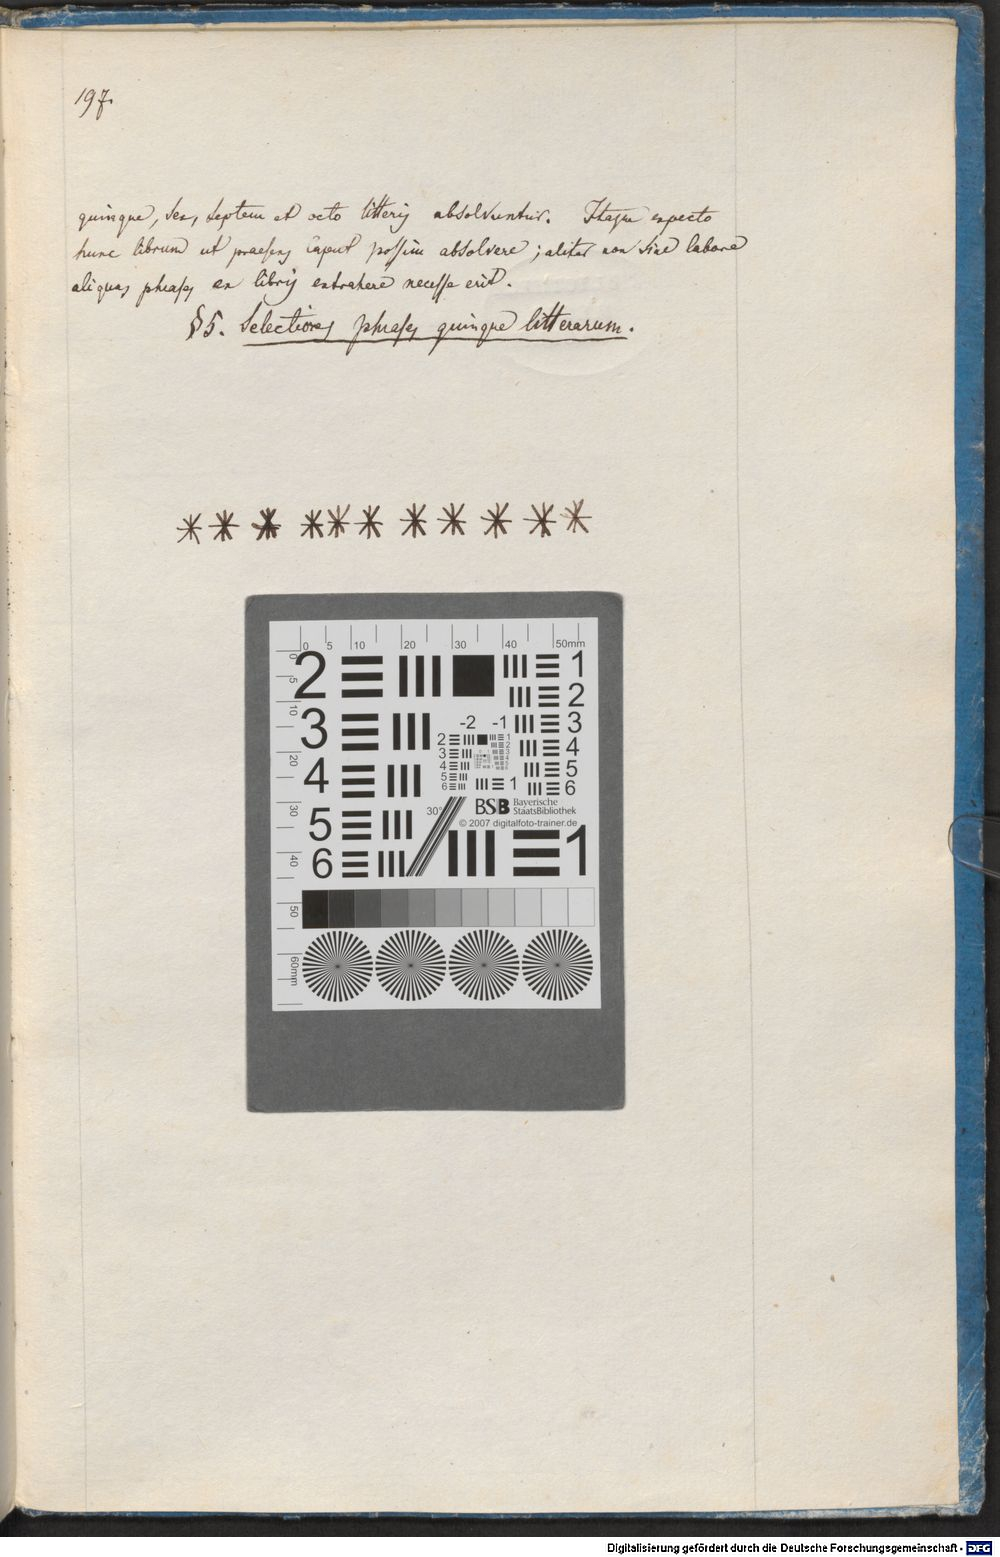 197.
quinque, sex, septem et octo litteris absolvuntur. Itaque expecto
hunc librum ut praesens caput possim absolvere; aliter non sine labore
aliquas phrases ex libris extrahere necesse erit.
§ 5. Selectiores phrases quinque litterarum.
* * * * * * * * * * *
0 5 10 20 30 40 50mm
0 5 10 20 30 40 50 60mm
2 1
2
3 -2 -1 3
4 4
5 5
6 6
2 1
3 2
4 3
5 4
6 5
6
1
30°
BSB Bayerische
StaatsBibliothek
© 2007 digitalfoto-trainer.de
1
Digitalisierung gefördert durch die Deutsche Forschungsgemeinschaft - DFG